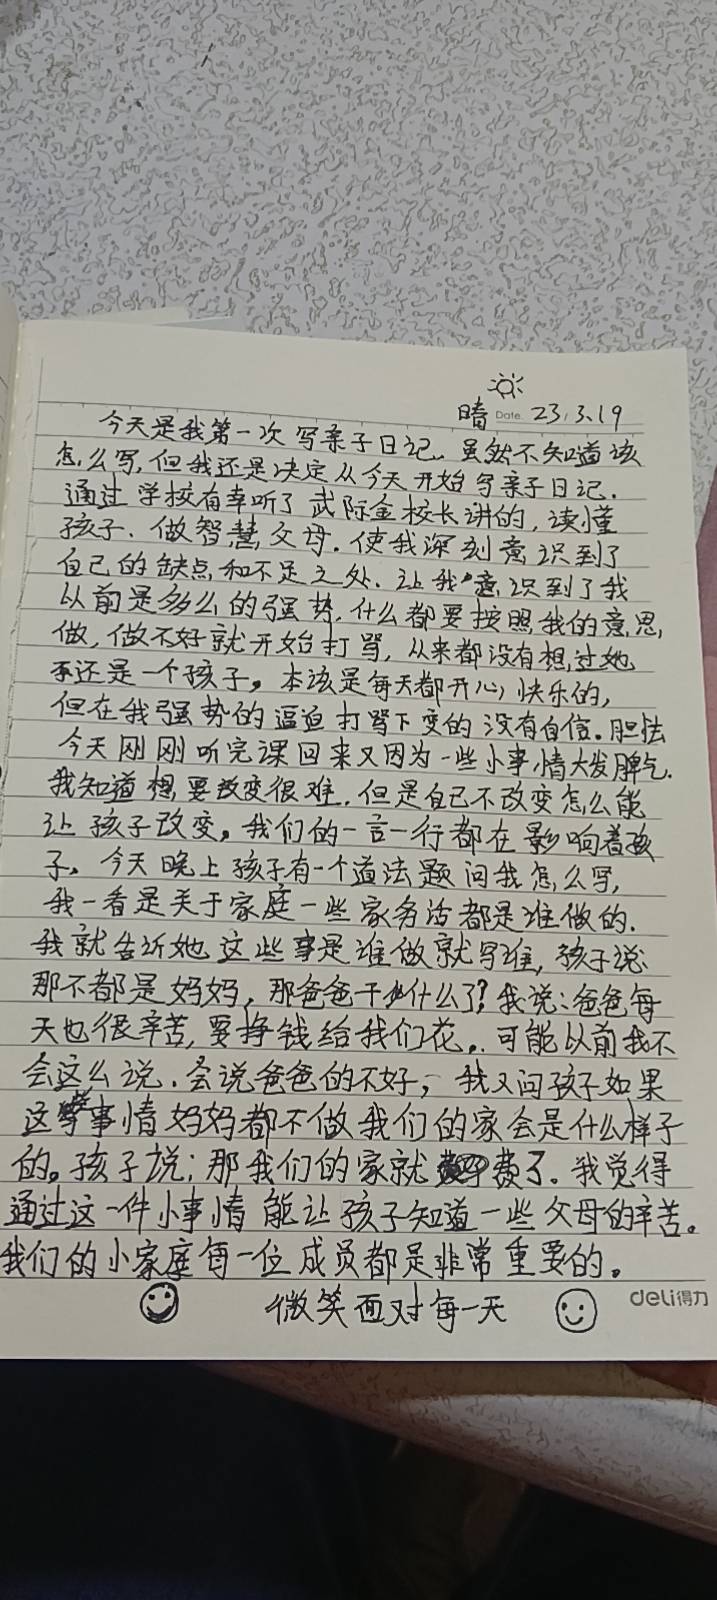 晴 Date. 23.3.19
今天是我第一次写亲子日记. 虽然不知道该
怎么写, 但我还是决定从今天开始写亲子日记.
通过学校有幸听了武际金校长讲的, 读懂
孩子. 做智慧父母. 使我深刻意识到了
自己的缺点和不足之处. 让我意识到了我
以前是多么的强势, 什么都要按照我的意思,
做, 做不好就开始打骂, 从来都没有想过她
还是一个孩子。本该是每天都开心快乐的,
但在我强势的逼迫打骂下变的没有自信。胆怯
今天刚刚听完课回来又因为一些小事情大发脾气.
我知道想要改变很难. 但是自己不改变怎么能
让孩子改变。我们的一言一行都在影响着孩
子。今天晚上孩子有一个道法题问我怎么写,
我一看是关于家庭一些家务活都是谁做的.
我就告诉她这些事是谁做就写谁, 孩子说:
那不都是妈妈, 那爸爸干什么了? 我说: 爸爸每
天也很辛苦, 要挣钱给我们花。. 可能以前我不
会这么说. 会说爸爸的不好, 我又问孩子如果
这些事情妈妈都不做我们的家会是什么样子
的。孩子说: 那我们的家就费了. 我觉得
通过这一件小事情能让孩子知道一些父母的辛苦。
我们的小家庭每一位成员都是非常重要的。
微笑面对每一天
deli得力